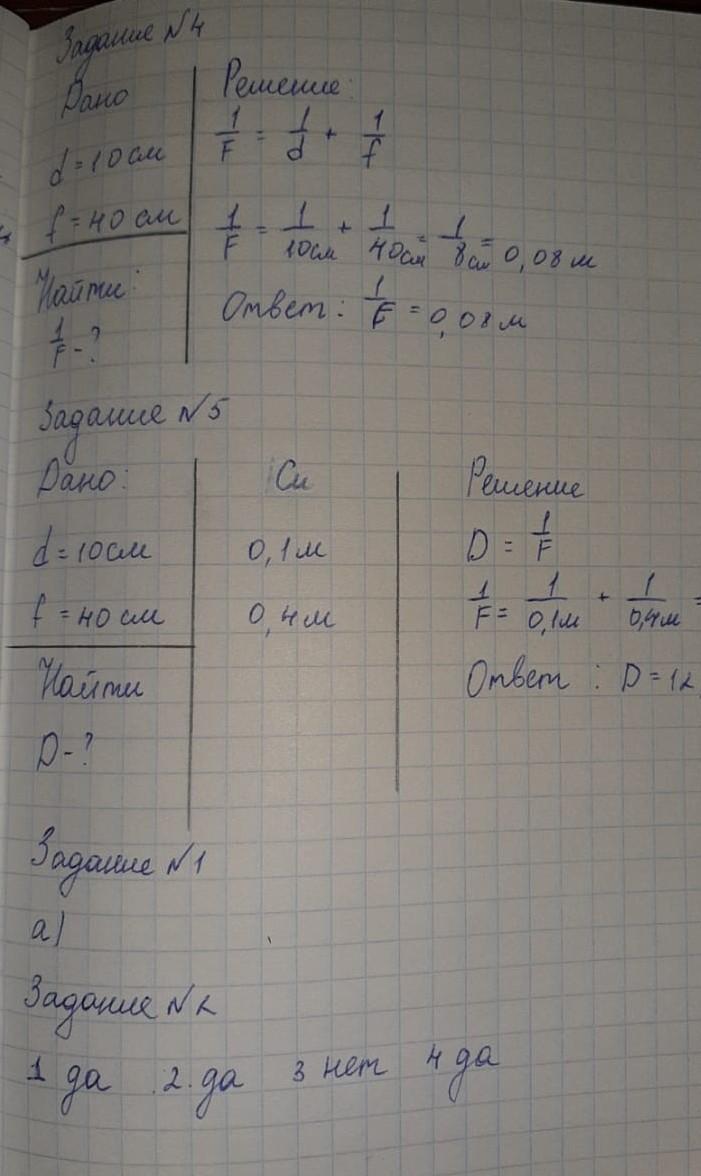 Задание №4
Дано
d = 10 см
f = 40 см
Найти:
1/F - ?
Решение:
1/F = 1/d + 1/f
1/F = 1/10см + 1/40см = 1/8см = 0,08 м
Ответ: 1/F = 0,08 м
Задание №5
Дано:
d = 10 см
f = 40 см
Найти
D - ?
Си
0,1 м
0,4 м
Решение
D = 1/F
1/F = 1/0,1м + 1/0,4м =
Ответ : D = 12
Задание №1
а)
Задание №2
1 да 2. да 3 нет 4 да